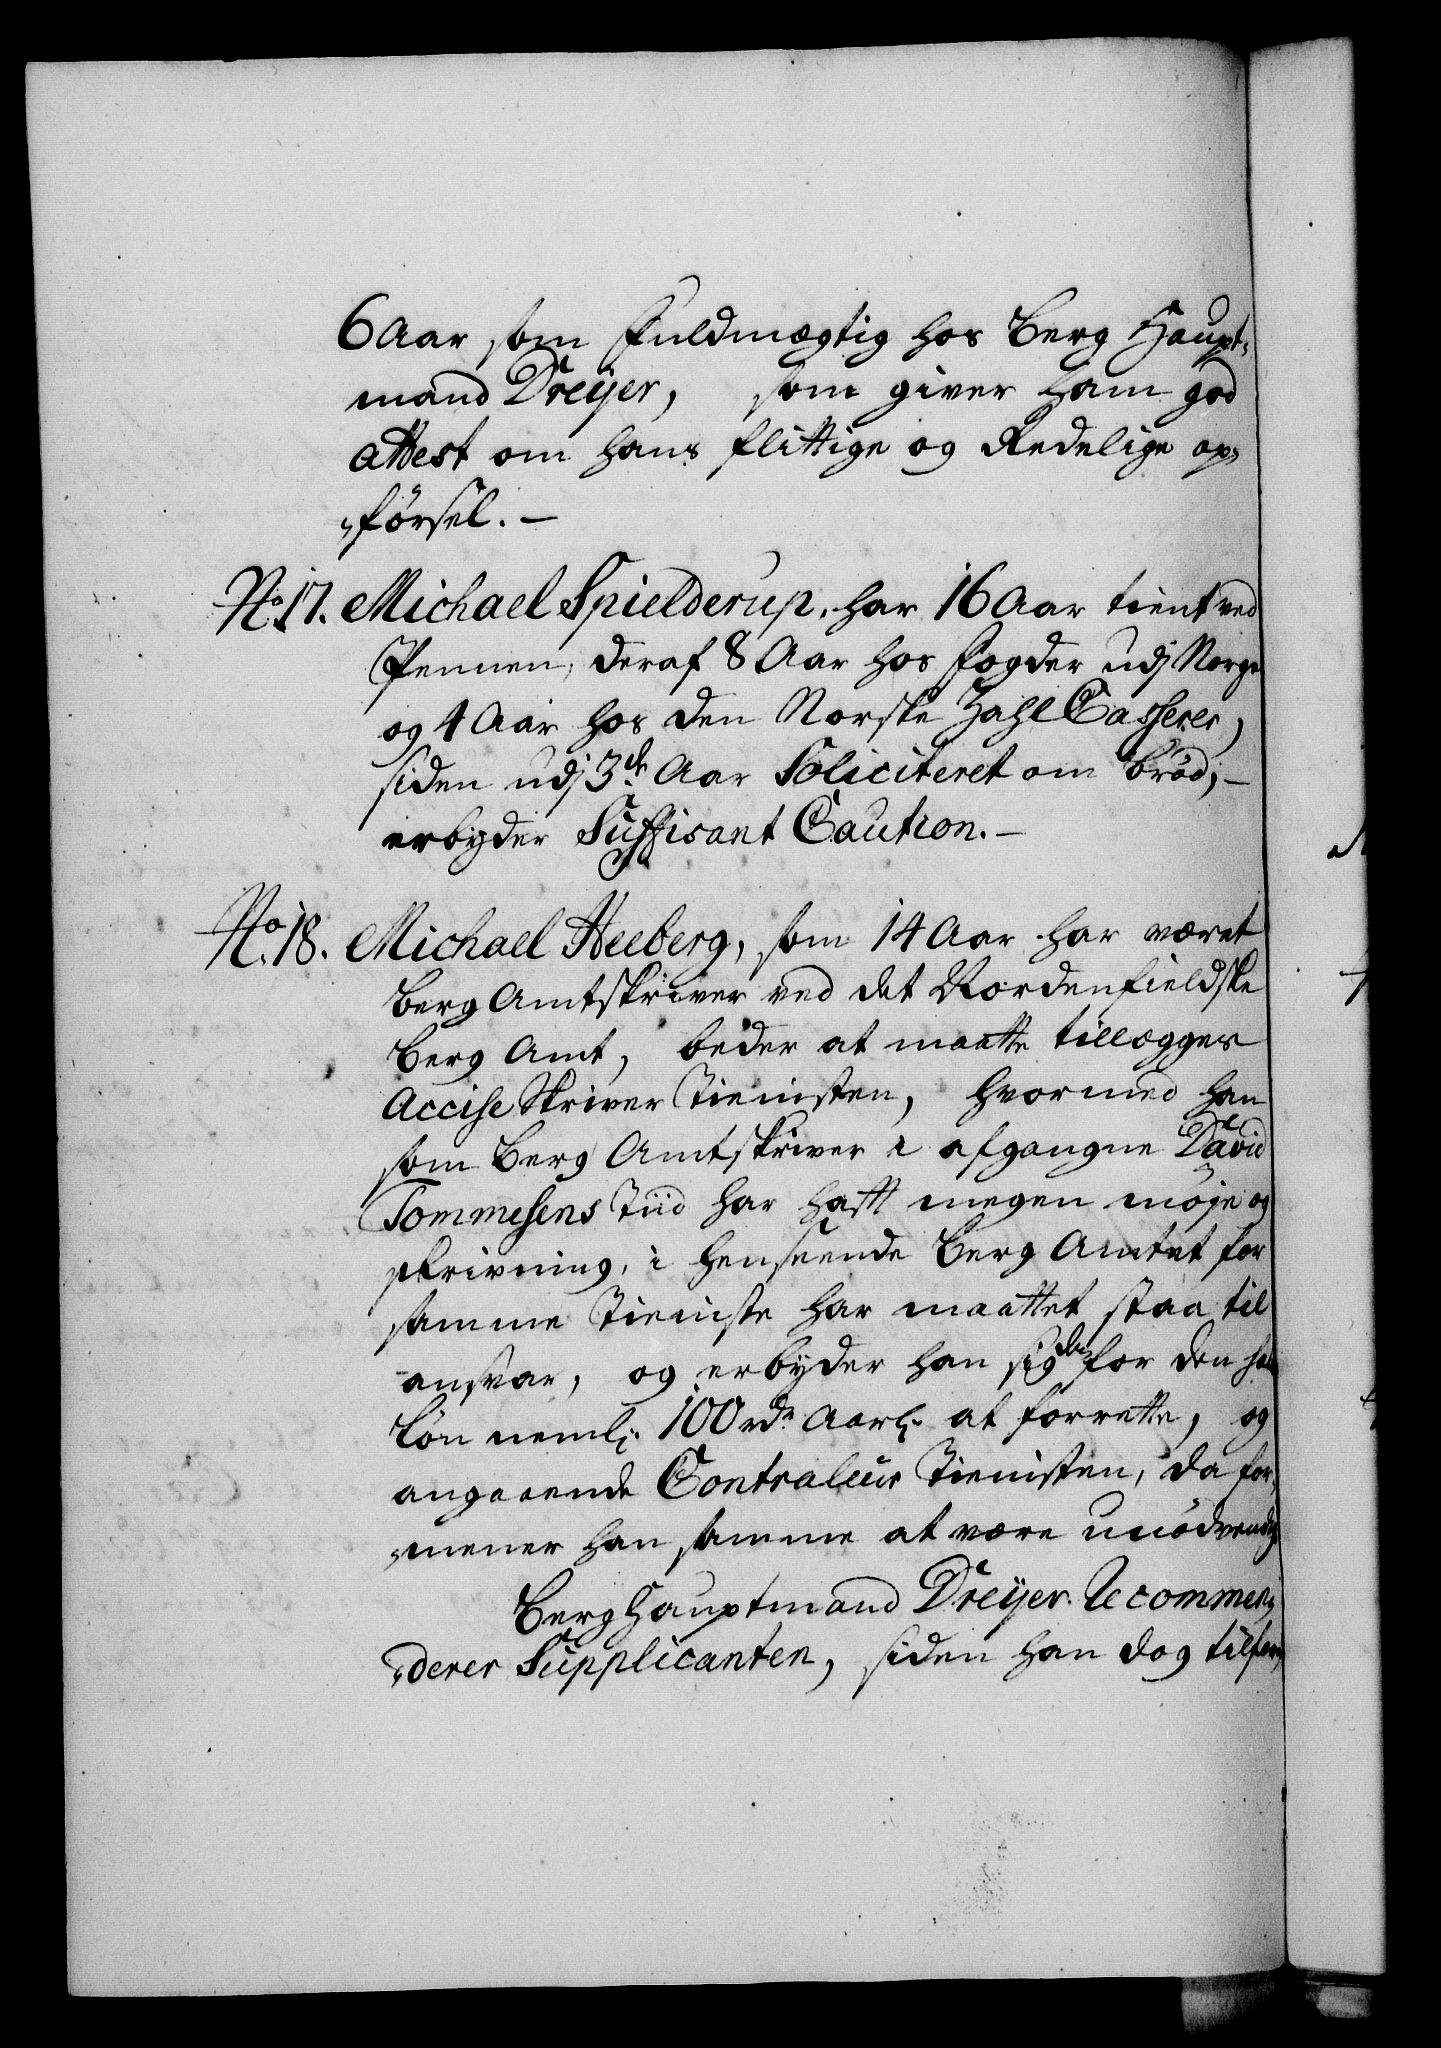 6 Aar som Fuldmægtig hos Berg Haupt-
mand Dreyer, som giver ham god
attest om hans flittige og Redelige op-
-førsel. -
No 17. Michael Spielderup, har 16 Aar tient ved
Pennen, deraf 8 Aar hos Fogder udj Norge
og 4 Aar hos den Norske Zahl Casserer,
siden udj 3de Aar Soliciteret om brød, -
erbyder Suffisant Caution. -
No 18. Michael Heeberg, som 14 Aar har været
Berg Amtskriver ved det Nordenfieldske
Berg Amt, beder at maatte tillægges
Accise Skriver Tienisten, hvormed han
som Berg Amtskriver i afgangne David
Tommesens Tiid har hatt megen møje og
skrivning, i henseende Berg Amtet for
samme Tieniste har maattet staa til
ansvar, og erbyder han sig den for den
Løn neml: 100 rdr Aarl: at forrette, og
angaaende Contraleur Tienisten, da for-
-mener han samme at være unødvendig
Berghauptmand Dreyer Recommen-
-derer Supplicanten, siden han dog tilforn